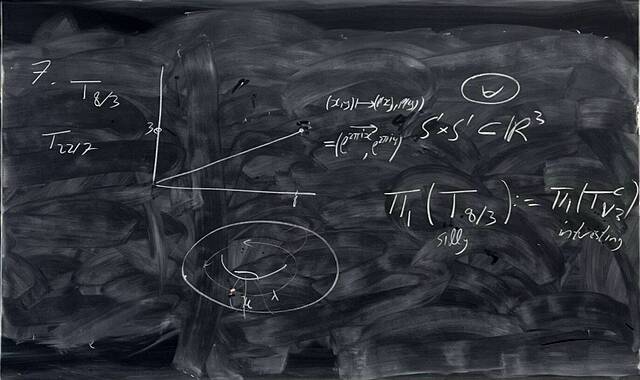 7. T_{8/3}
T_{22/7}
3
8
(x,y) ↦ (p(x), p(y))
= (e^{2πix}, e^{2πiy})
S¹×S¹ ⊂ ℝ³
π₁(T_{8/3}) := π₁(T^c_{8/3})
silly interesting
μ λ